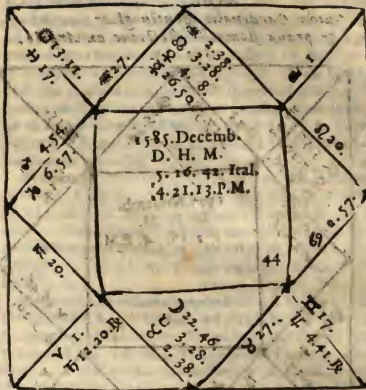 ☉ 13.12.
♐ 17.
♏ 27.
♎ 2.38.
3.28.
☋ 4. 8.
26.50.
♍ 1
♌ 20.
4.54.
♑ 6.57.
1585. Decemb.
D. H. M.
5. 16. 42. Ital.
4. 21. 13. P.M.
♋ 2.57.
♒ 20.
44
♓ 1.
♄ 12.20. ℞
☽ 22.46.
3.28.
2.38.
♉ 27.
♊ 17.
♃ 4.41. ℞